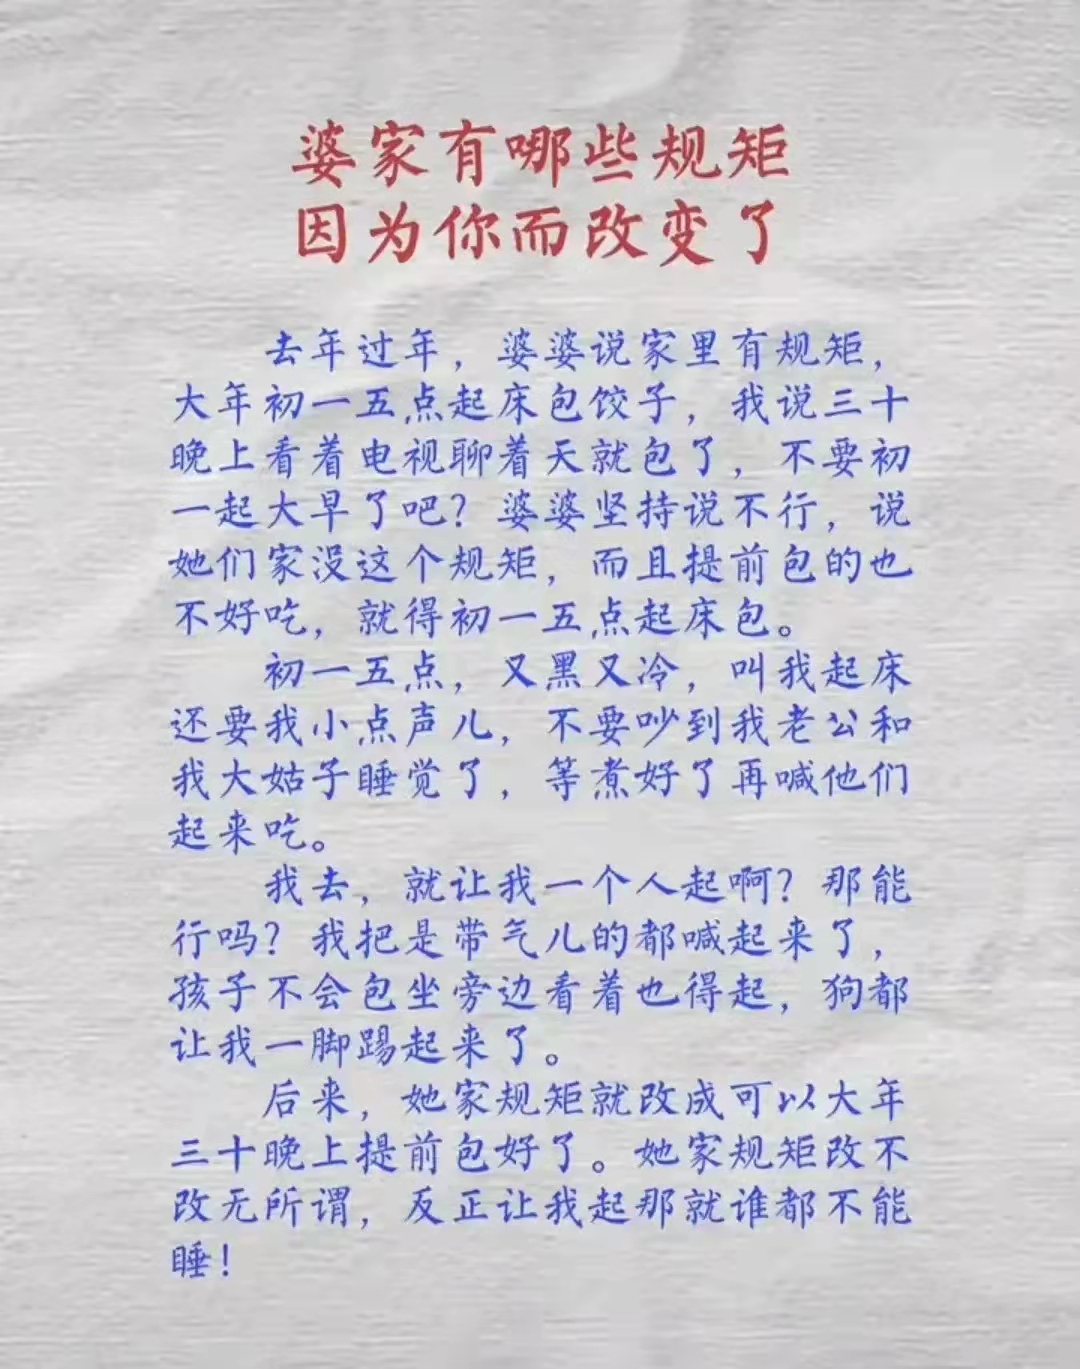 婆家有哪些规矩
因为你而改变了
去年过年，婆婆说家里有规矩，
大年初一五点起床包饺子，我说三十
晚上看着电视聊着天就包了，不要初
一起大早了吧？婆婆坚持说不行，说
她们家没这个规矩，而且提前包的也
不好吃，就得初一五点起床包。
初一五点，又黑又冷，叫我起床
还要我小点声儿，不要吵到我老公和
我大姑子睡觉了，等煮好了再喊他们
起来吃。
我去，就让我一个人起啊？那能
行吗？我把是带气儿的都喊起来了，
孩子不会包坐旁边看着也得起，狗都
让我一脚踢起来了。
后来，她家规矩就改成可以大年
三十晚上提前包好了。她家规矩改不
改无所谓，反正让我起那就谁都不能
睡！